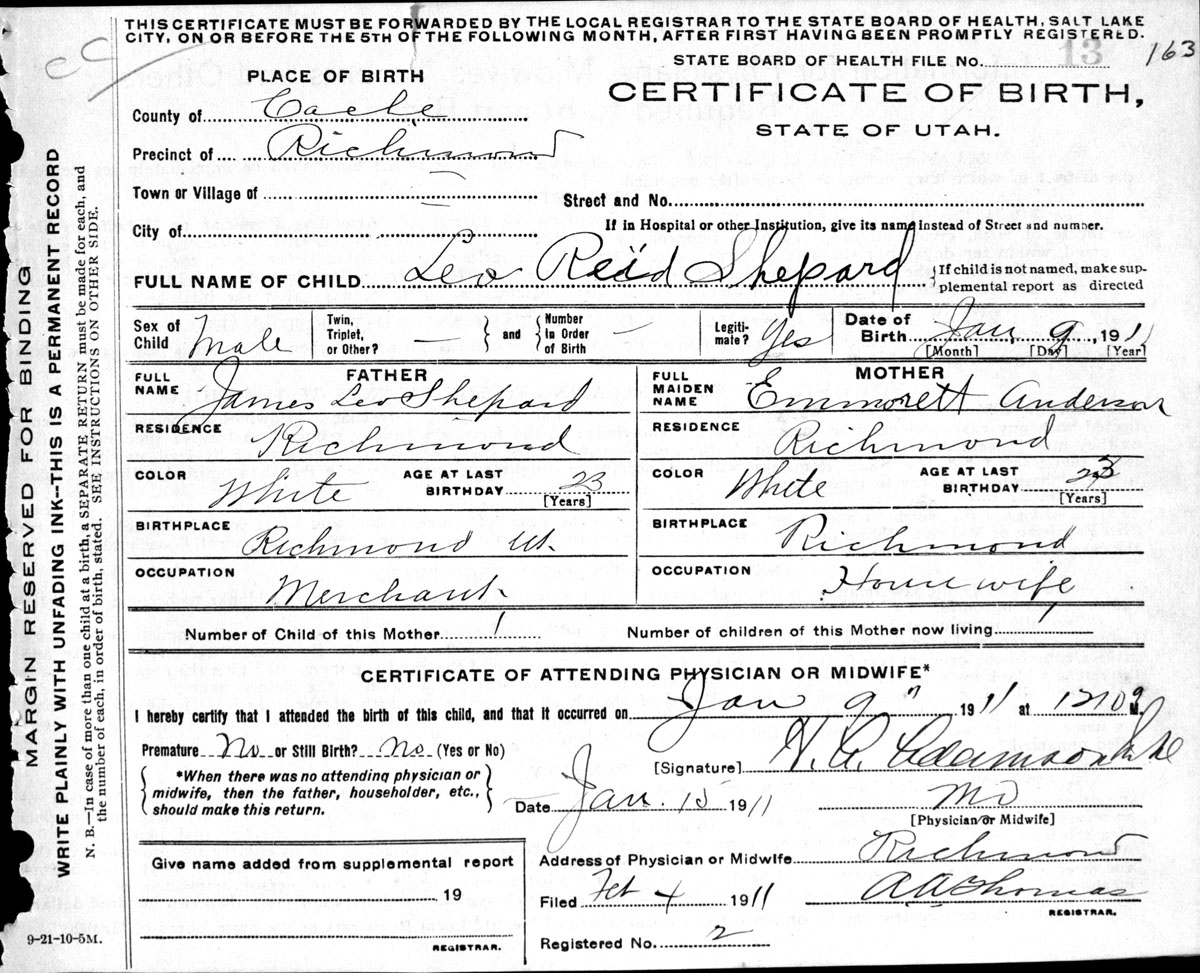 THIS CERTIFICATE MUST BE FORWARDED BY THE LOCAL REGISTRAR TO THE STATE BOARD OF HEALTH, SALT LAKE
CITY, ON OR BEFORE THE 5TH OF THE FOLLOWING MONTH, AFTER FIRST HAVING BEEN PROMPTLY REGISTERED.
163
STATE BOARD OF HEALTH FILE No. 13
PLACE OF BIRTH
CERTIFICATE OF BIRTH,
STATE OF UTAH.
County of Cache
Precinct of Richmond
Town or Village of —
Street and No.
City of —
If in Hospital or other Institution, give its name instead of Street and number.
FULL NAME OF CHILD Leo Reid Shepard
{If child is not named, make sup-
plemental report as directed
Sex of Child Male
Twin, Triplet, or Other? — } and { Number In Order of Birth —
Legiti-mate? Yes
Date of Birth Jan 9, 1911
[Month] [Day] [Year]
FATHER
FULL NAME James Leo Shepard
RESIDENCE Richmond
COLOR White AGE AT LAST BIRTHDAY 23 [Years]
BIRTHPLACE Richmond Ut.
OCCUPATION Merchant
MOTHER
FULL MAIDEN NAME Emmorett Anderson
RESIDENCE Richmond
COLOR White AGE AT LAST BIRTHDAY [Years]
BIRTHPLACE Richmond
OCCUPATION House wife
Number of Child of this Mother 1
Number of children of this Mother now living 1
CERTIFICATE OF ATTENDING PHYSICIAN OR MIDWIFE*
I hereby certify that I attended the birth of this child, and that it occurred on Jan 9" 1911 at 1210 a M.
Premature No or Still Birth? No (Yes or No)
{ *When there was no attending physician or
midwife, then the father, householder, etc.,
should make this return. }
[Signature] Adamson
MD
[Physician or Midwife]
Date Jan. 15 1911
Give name added from supplemental report
19
REGISTRAR.
Address of Physician or Midwife Richmond
Filed Feb 4 1911 AA Thomas
REGISTRAR.
Registered No. 2
9-21-10-5M.
MARGIN RESERVED FOR BINDING
WRITE PLAINLY WITH UNFADING INK—THIS IS A PERMANENT RECORD
N. B.—In case of more than one child at a birth, a SEPARATE RETURN must be made for each, and
the number of each, in order of birth, stated. SEE INSTRUCTIONS ON OTHER SIDE.